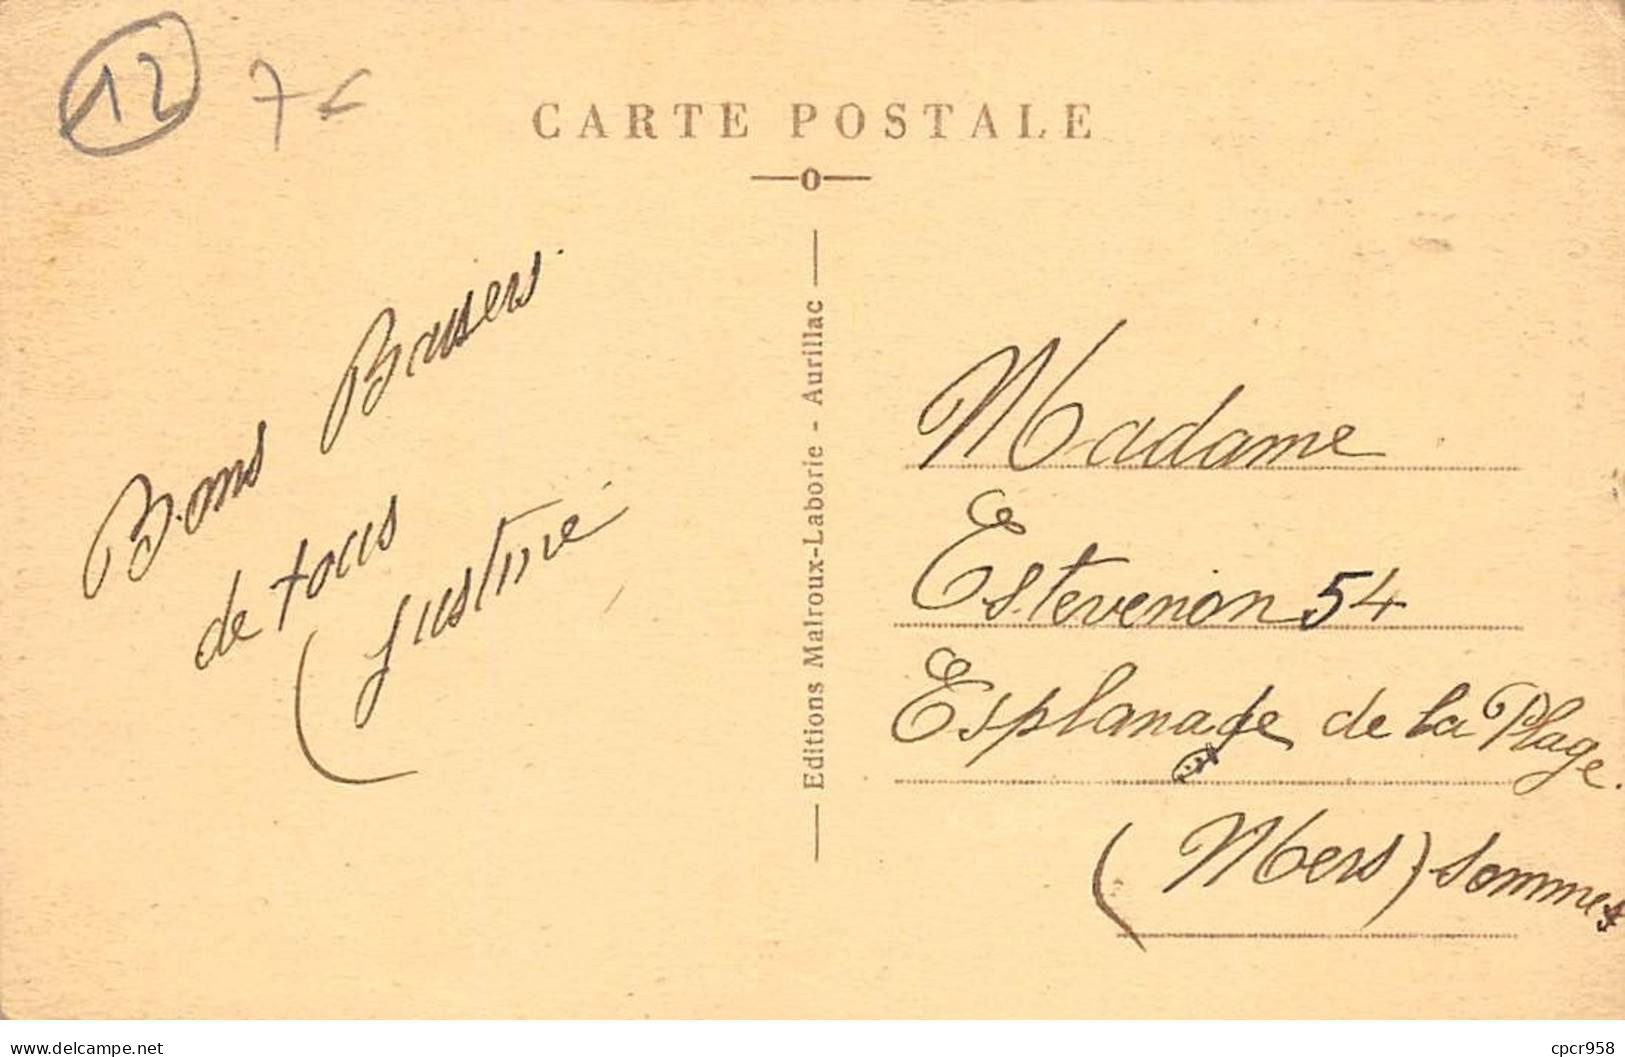 12 7€
CARTE POSTALE
Bons Baisers
de tous
Justine
Editions Malroux-Laborie - Aurillac
Madame
Estevenon 54
Esplanade de la Plage.
(Mers) Somme
delcampe.net
cpcr958